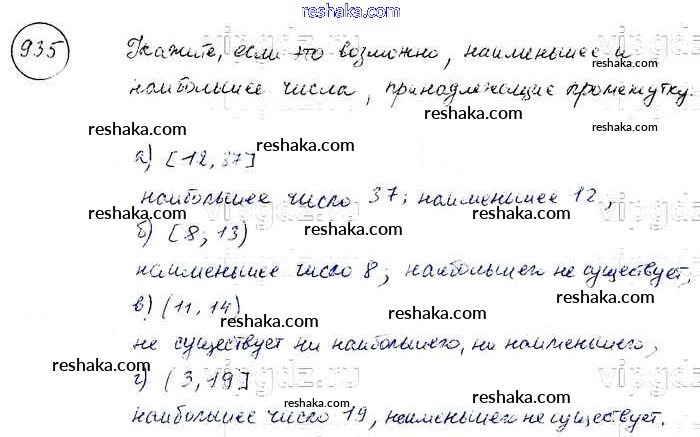 www.reshaka.com
935 Укажите, если это возможно, наименьшее и
reshaka.com
наибольшее числа, принадлежащие промежутку.
reshaka.com reshaka.com reshaka.com
а) [12, 37]
reshaka.com reshaka.com
наибольшее число 37; наименьшее 12,
vipgdz.ru vipgdz.ru
reshaka.com reshaka.com reshaka.com
б) [8; 13)
reshaka.com
наименьшее число 8, наибольшего не существует,
reshaka.com reshaka.com
в) (11, 14)
reshaka.com
не существует ни наибольшего, ни наименьшего,
reshaka.com reshaka.com
г) (3, 19]
vipgdz.ru vipgdz.ru
reshaka.com reshaka.com
наибольшее число 19, наименьшего не существует.
reshaka.com